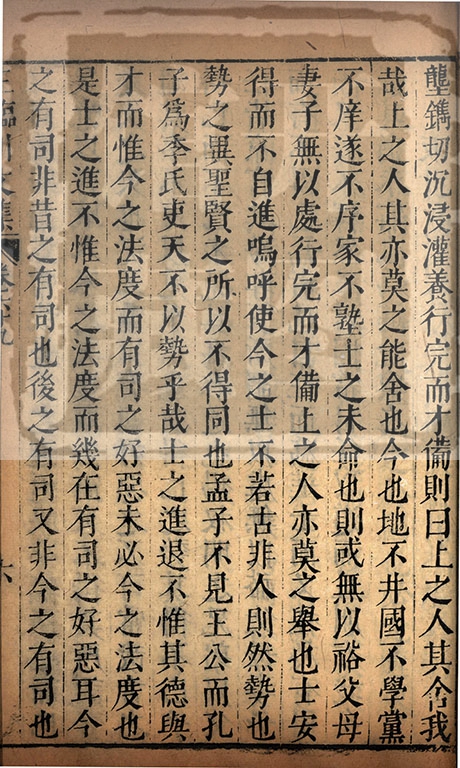 礱鐫切沉浸灌養行完而才備則曰上之人其舍我
哉上之人其亦莫之能舍也今也地不井國不學黨
不庠遂不序家不塾士之未命也則或無以裕父母
妻子無以處行完而才備上之人亦莫之舉也士安
得而不自進嗚呼使今之士不若古非人則然勢也
勢之異聖賢之所以不得同也孟子不見王公而孔
子為季氏吏夫不以勢乎哉士之進退不惟其德與
才而惟今之法度而有司之好惡未必今之法度也
是士之進不惟今之法度而幾在有司之好惡耳今
之有司非昔之有司也後之有司又非今之有司也
王臨川文集 卷六九 六